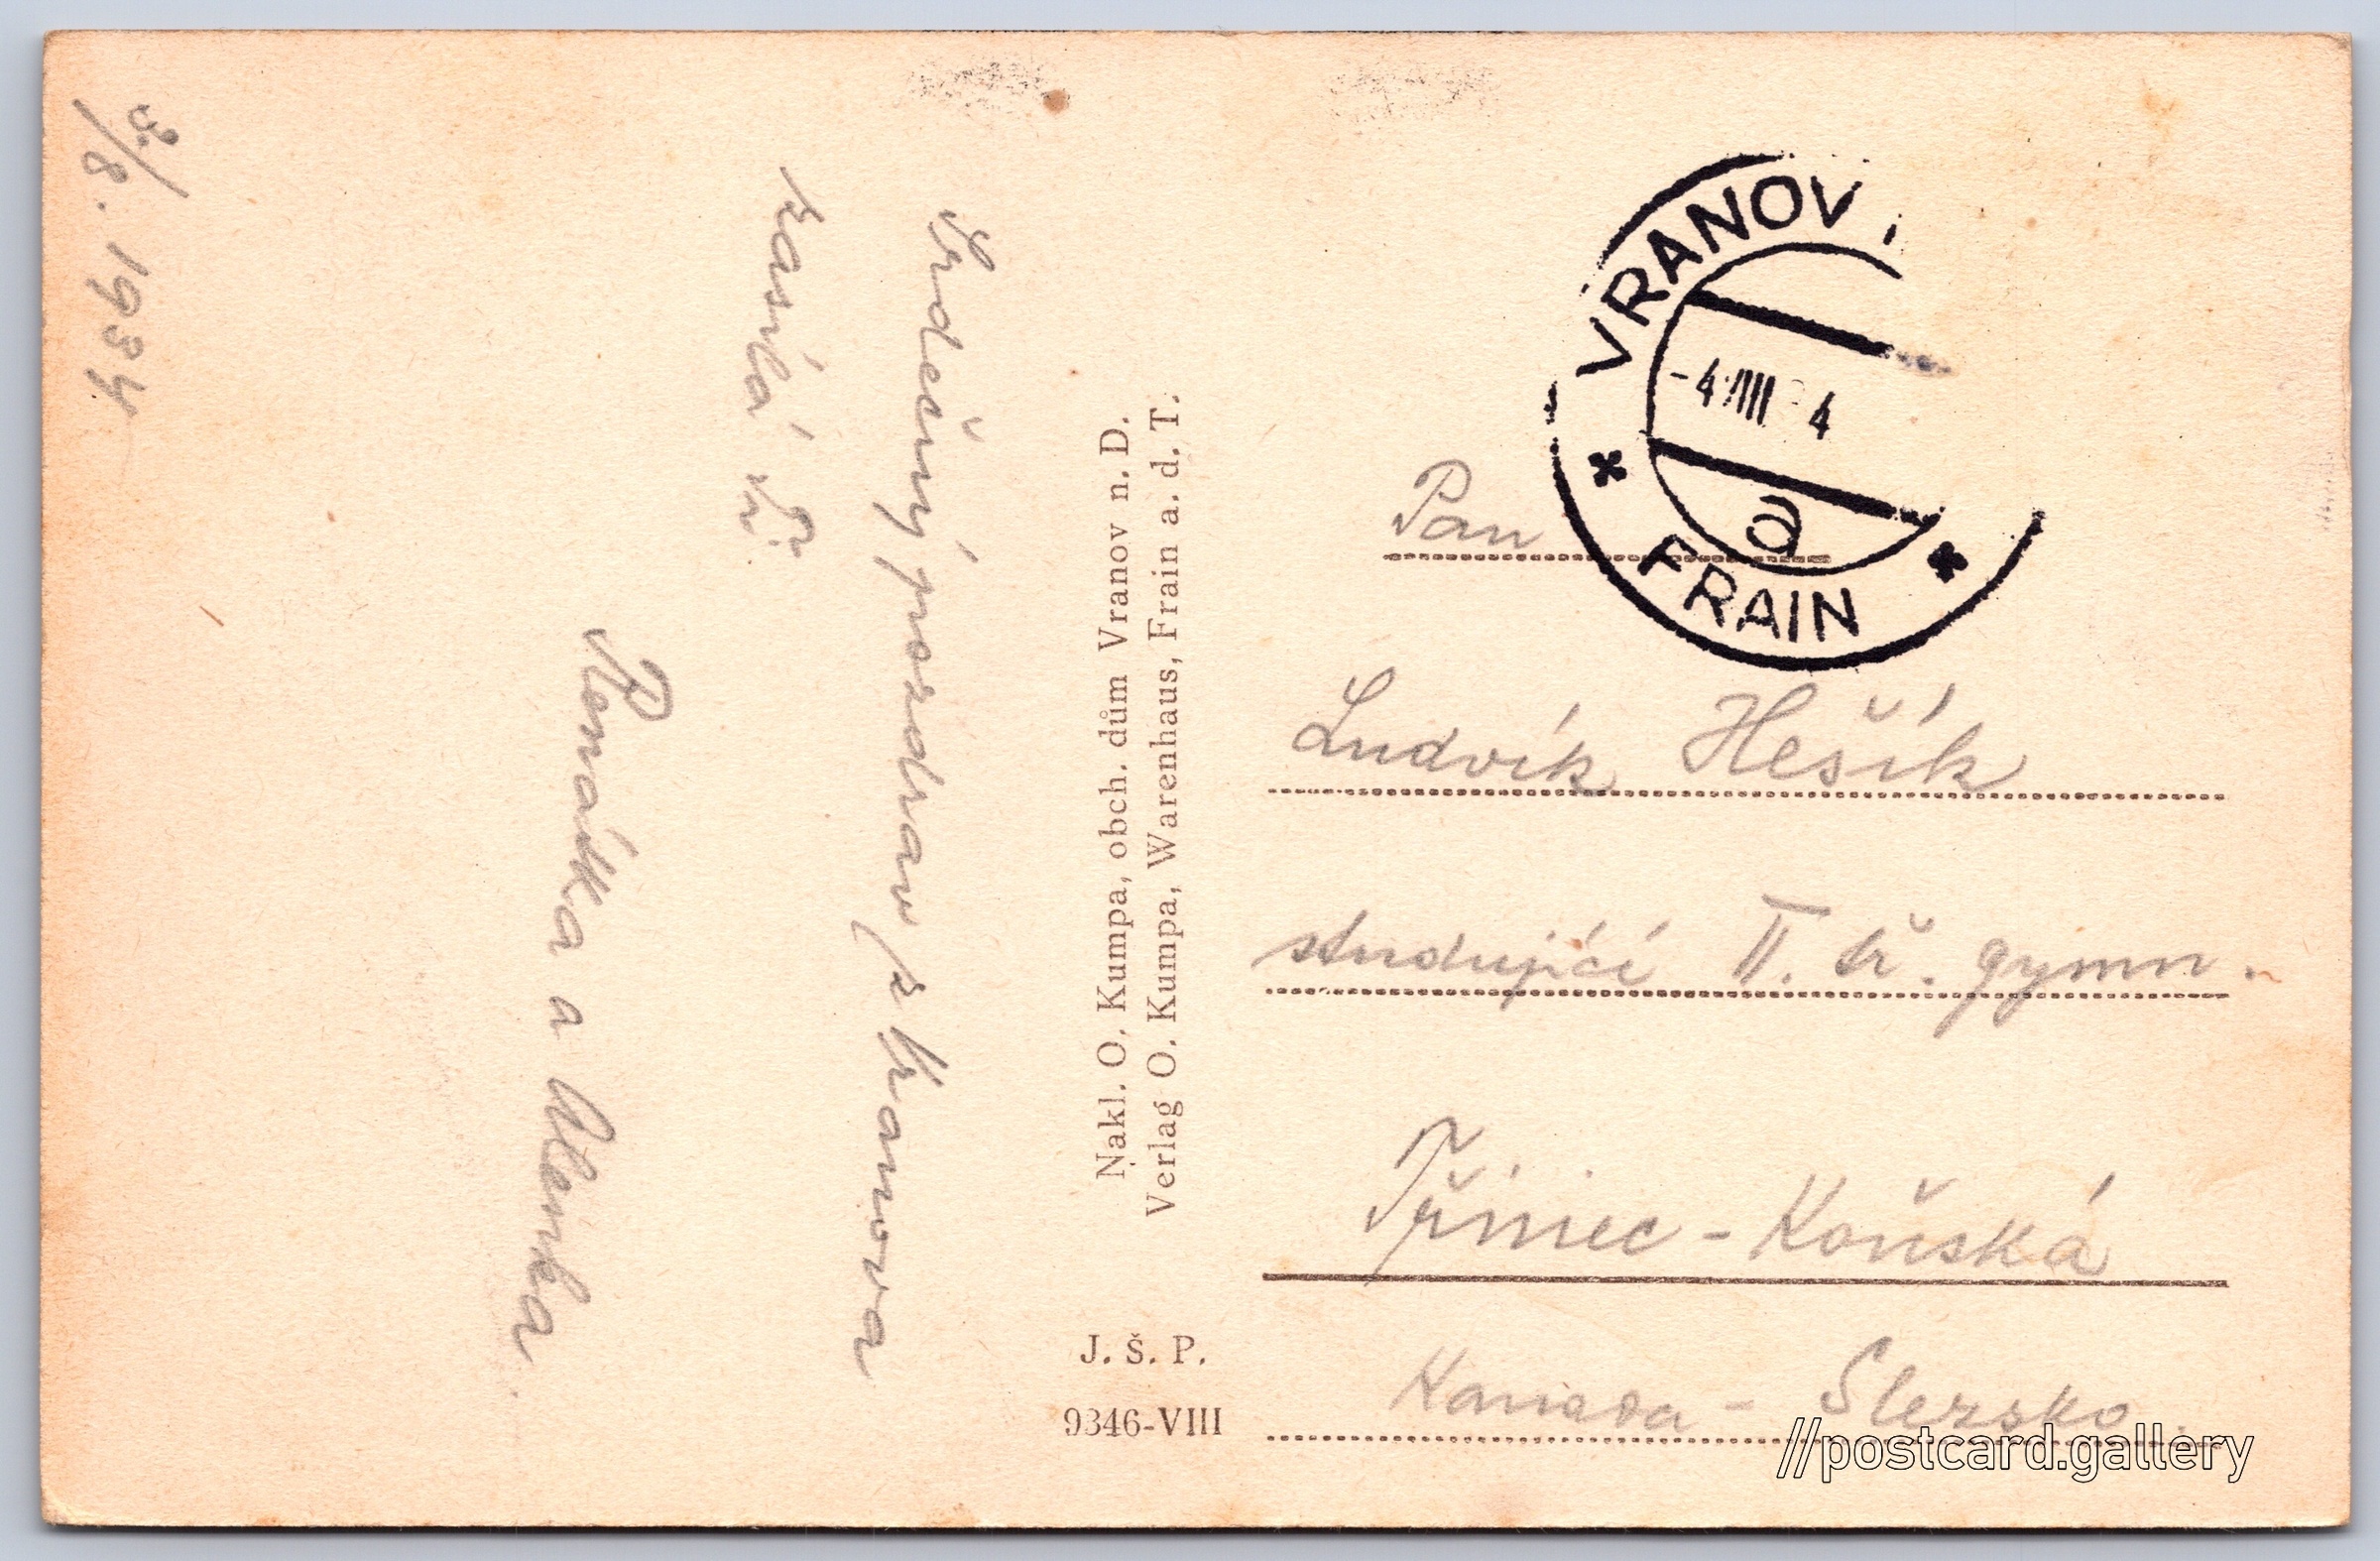 3./8. 1934
Srdečný pozdrav z Vranova
zasílá Ti
Renátka a Alenka
Nakl. O. Kumpa, obch. dům Vranov n. D.
Verlag O. Kumpa, Warenhaus, Frain a. d. T.
J. Š. P.
9346-VIII
VRANOV
-4.VIII 4
a
FRAIN
Pan
Ludvík Hešík
studující II. tř. gymn.
Třinec - Konská
Kanada - Slezsko.
//postcard.gallery